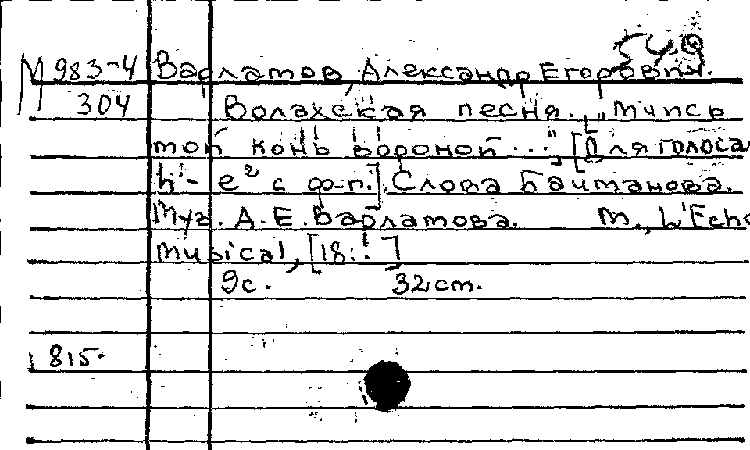 549
М 983-4 Варламов, Александр Егорович.
304 Волахская песня. ["Мчись
мой конь вороной ..."] [Для голоса
h¹- e² с ф-п.]. Слова Баитманова.
Муз. А.Е. Варламова. М., L'Echo
musical, [18..]
9с. 32cm.
815.